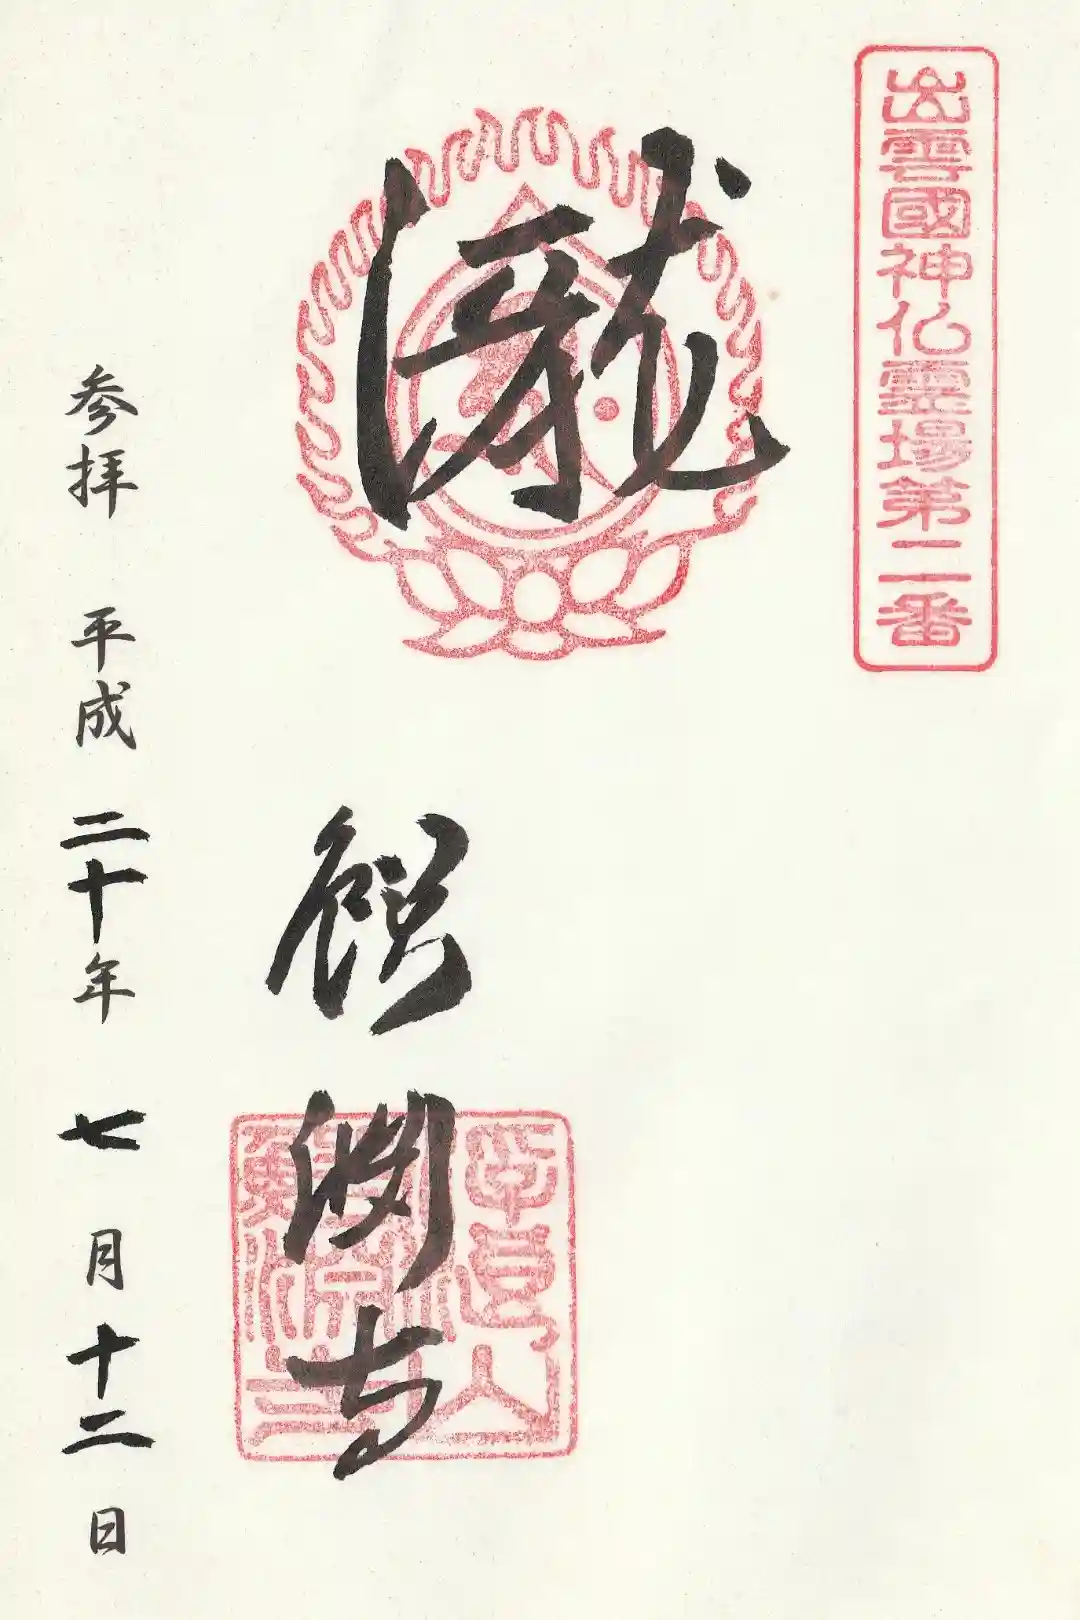 出雲國神仏霊場第二番
瀧
鰐淵寺
参拝 平成二十年 七月十二日